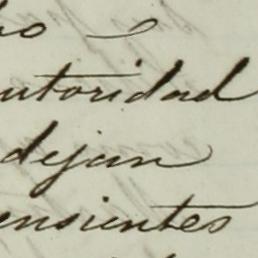 utoridad
dejan
ensientes